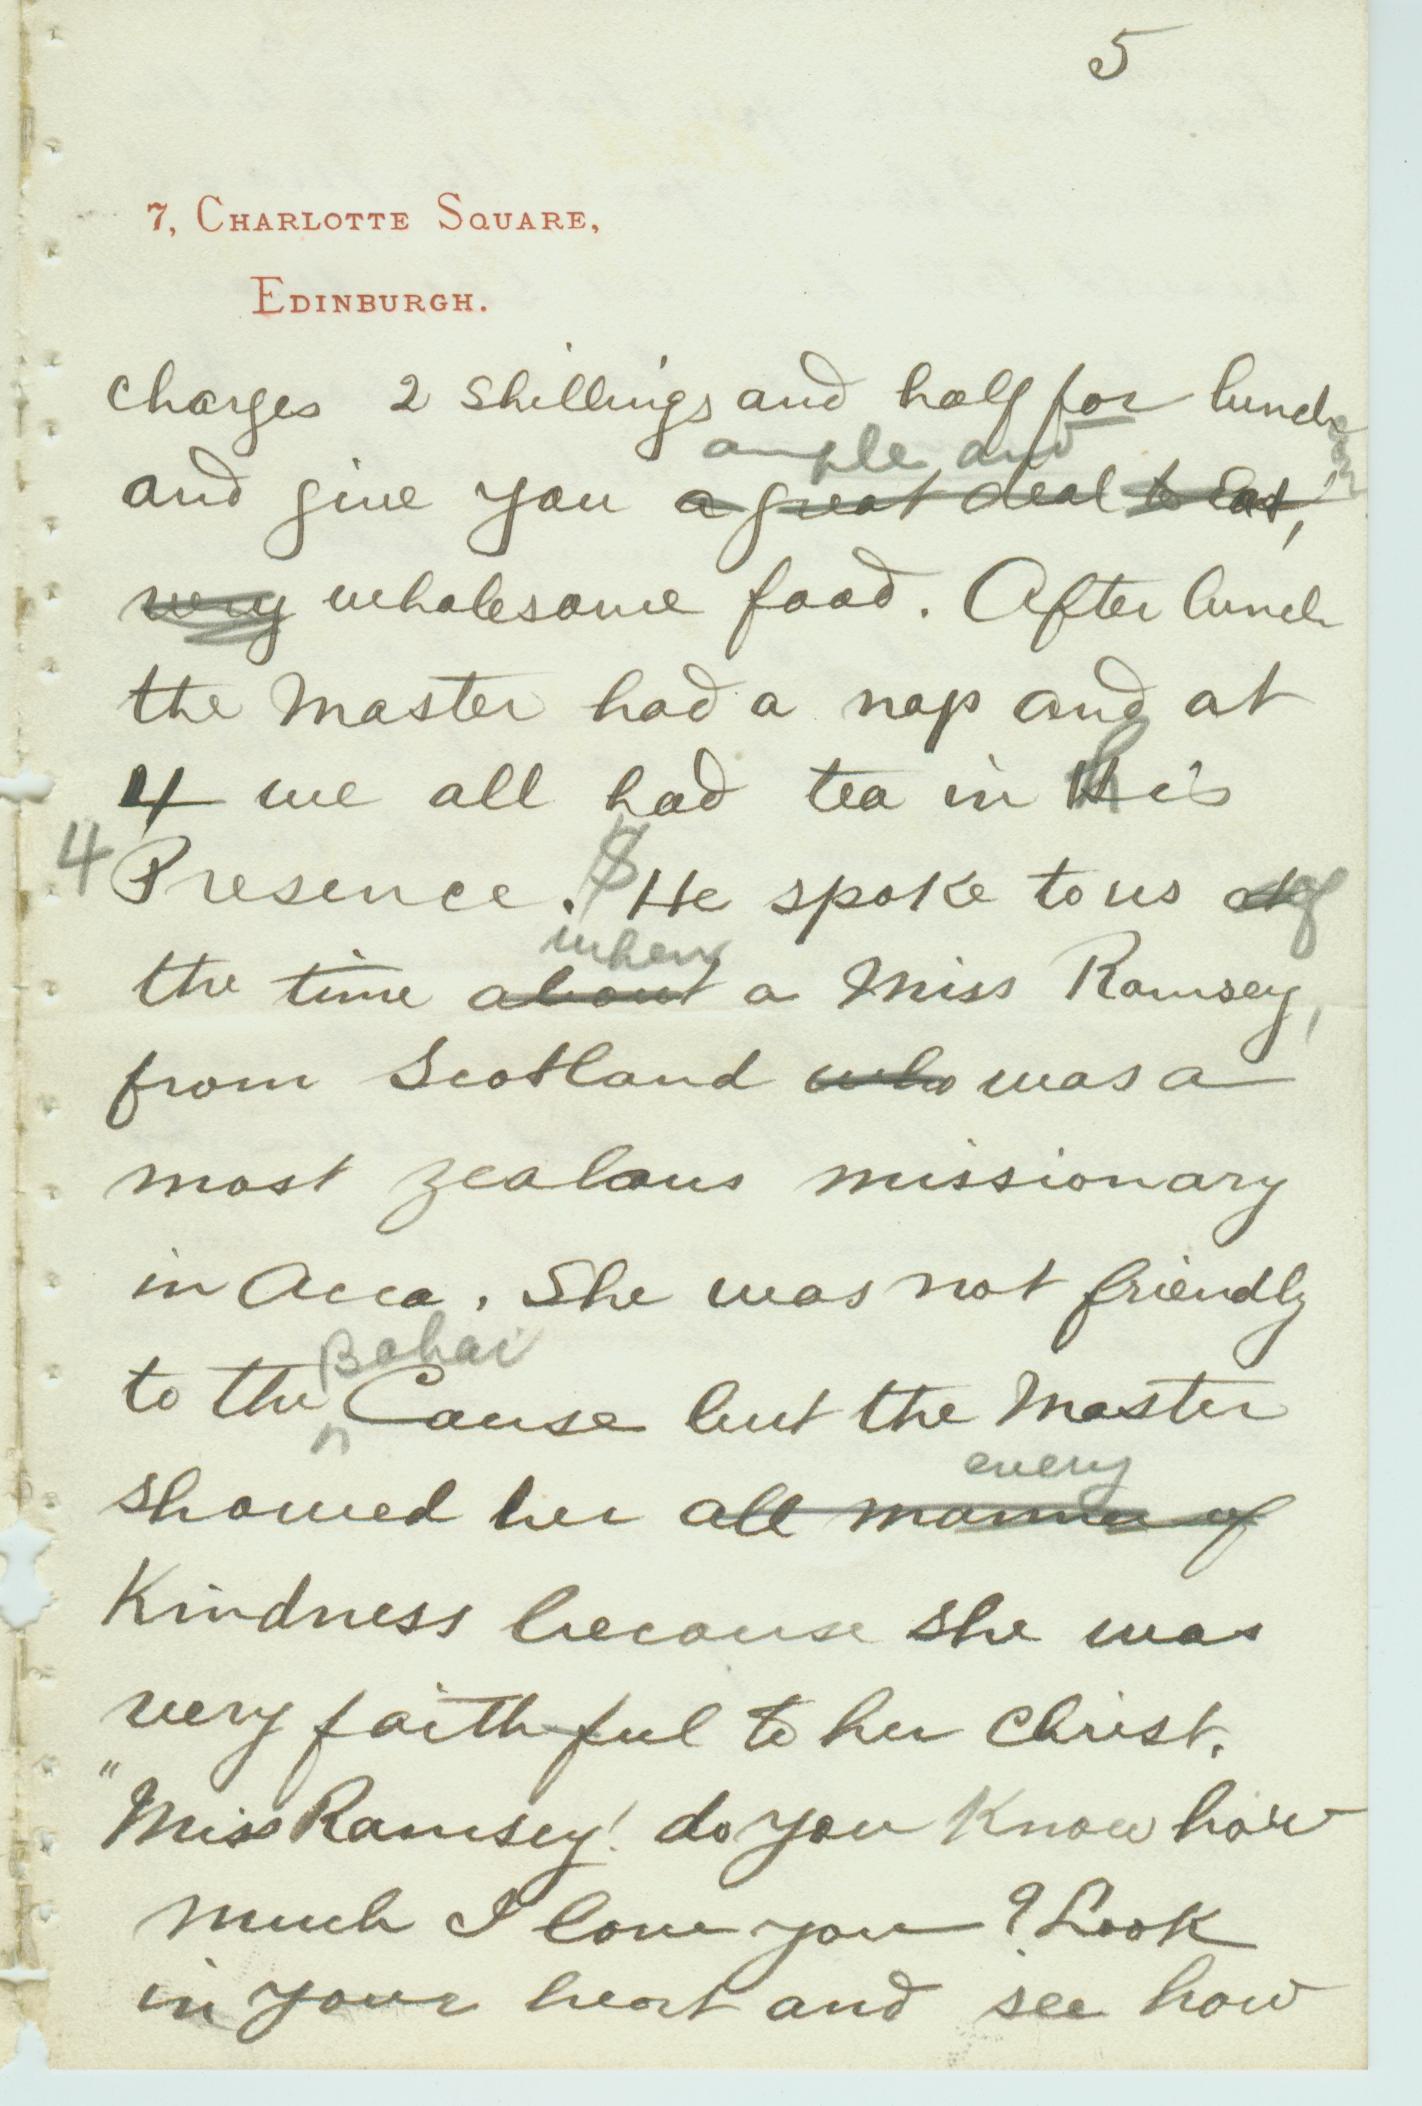 5
7, Charlotte Square,
Edinburgh.
charges 2 shillings and half for lunch
ample and
and give you a great deal to eat,
very wholesome food. After lunch
the Master had a nap and at
4 we all had tea in his
4 Presence. He spoke to us of
when
the time about a Miss Ramsey,
from Scotland who was a
most zealous missionary
in Acca. She was not friendly
Bahai
to the Cause but the Master
every
showed her all manner of
Kindness because she was
very faithful to her Christ.
"Miss Ramsey! do you know how
much I love you? Look
in your heart and see how